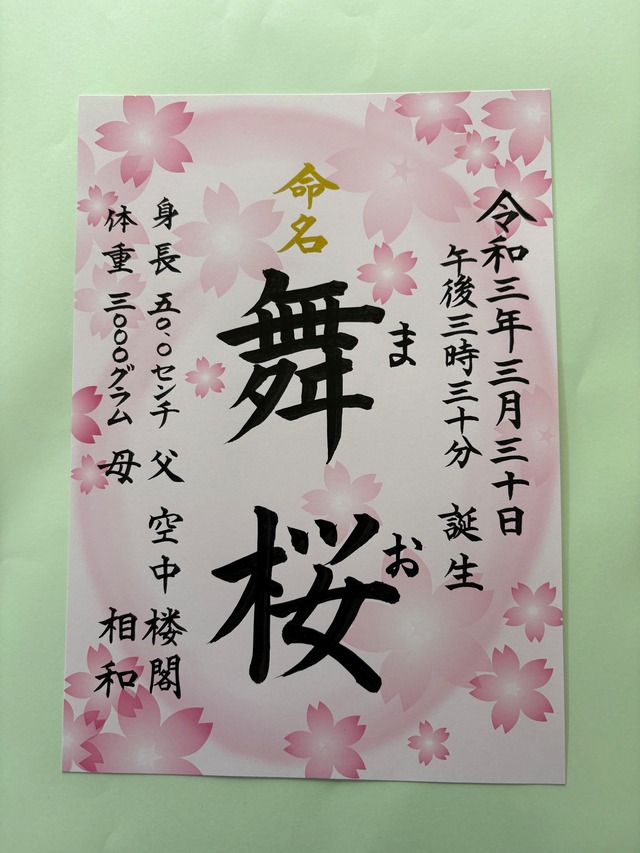 令和三年三月三十日
午後三時三十分 誕生
命名
舞桜
まお
身長 五〇.〇センチ 父 空中楼閣
体重 三〇〇〇グラム 母 相和